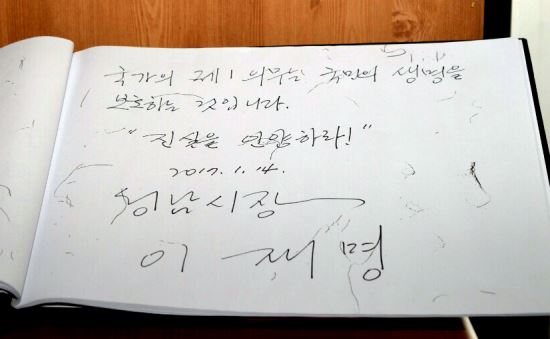 국가의 제1 의무는 국민의 생명을
보호하는 것입니다.
"진실을 인양하라!"
2017.1.14.
성남시장
이재명